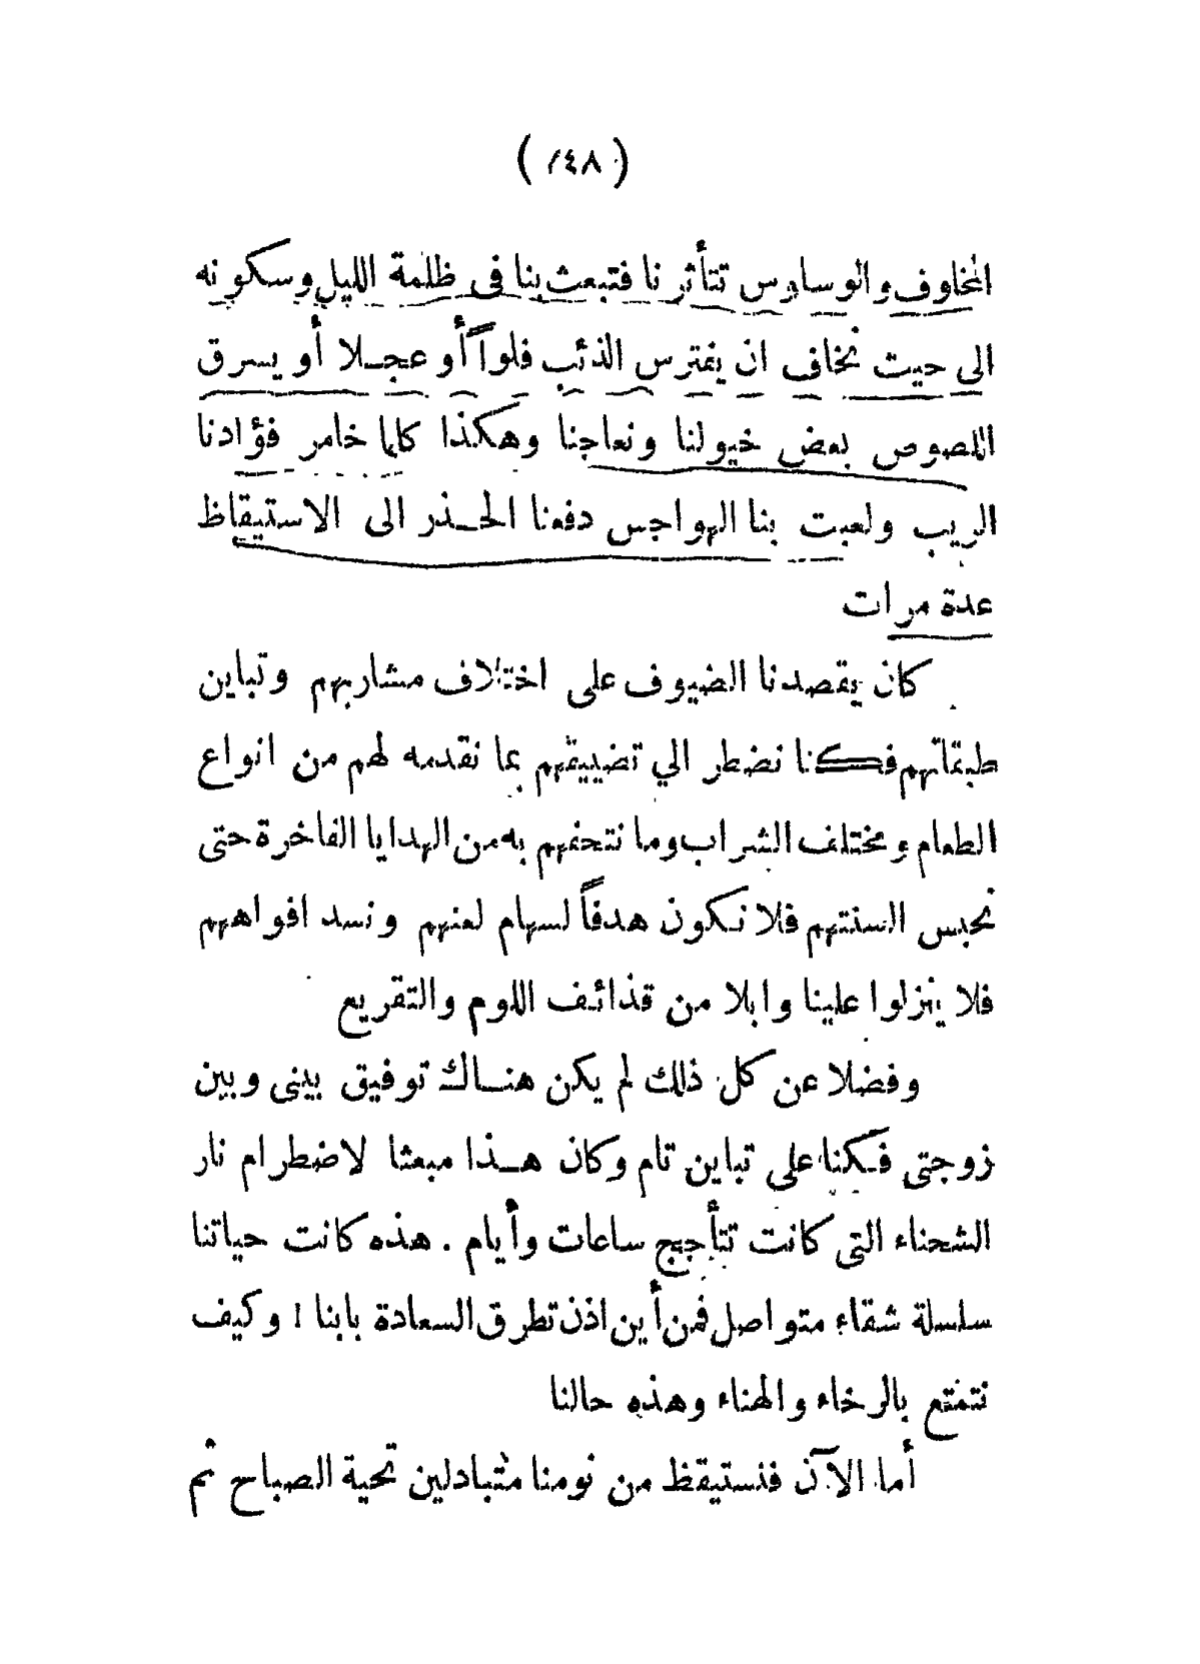 ( ١٤٨ )
المخاوف والوساوس تتأثرنا فتبعث بنا فى ظلمة الليل وسكونه
الى حيت نخاف ان يفترس الذئب فلواً أو عجلا أو يسرق
اللصوص بعض خيولنا ونعاجنا وهكذا كلما خامر فؤادنا
الريب ولعبت بنا الهواجس دفعنا الحذر الى الاستيقاظ
عدة مرات
كان يقصدنا الضيوف على اختلاف مشاربهم وتباين
طبقاتهم فكنا نضطر الي تضييفهم بما نقدمه لهم من انواع
الطعام ومختلف الشراب وما نتحفهم به من الهدايا الفاخرة حتى
نحبس السنتهم فلا نكون هدفاً لسهام لعنهم ونسد افواههم
فلا ينزلوا علينا وابلا من قذائف اللوم والتقريع
وفضلا عن كل ذلك لم يكن هناك توفيق بينى وبين
زوجتى فكنا على تباين تام وكان هذا مبعثا لاضطرام نار
الشحناء التى كانت تتأجج ساعات وأيام . هذه كانت حياتنا
سلسلة شقاء متواصل فمن أين اذن تطرق السعادة بابنا ! وكيف
نتمتع بالرخاء والهناء وهذه حالنا
أما الآن فنستيقظ من نومنا متبادلين تحية الصباح ثم